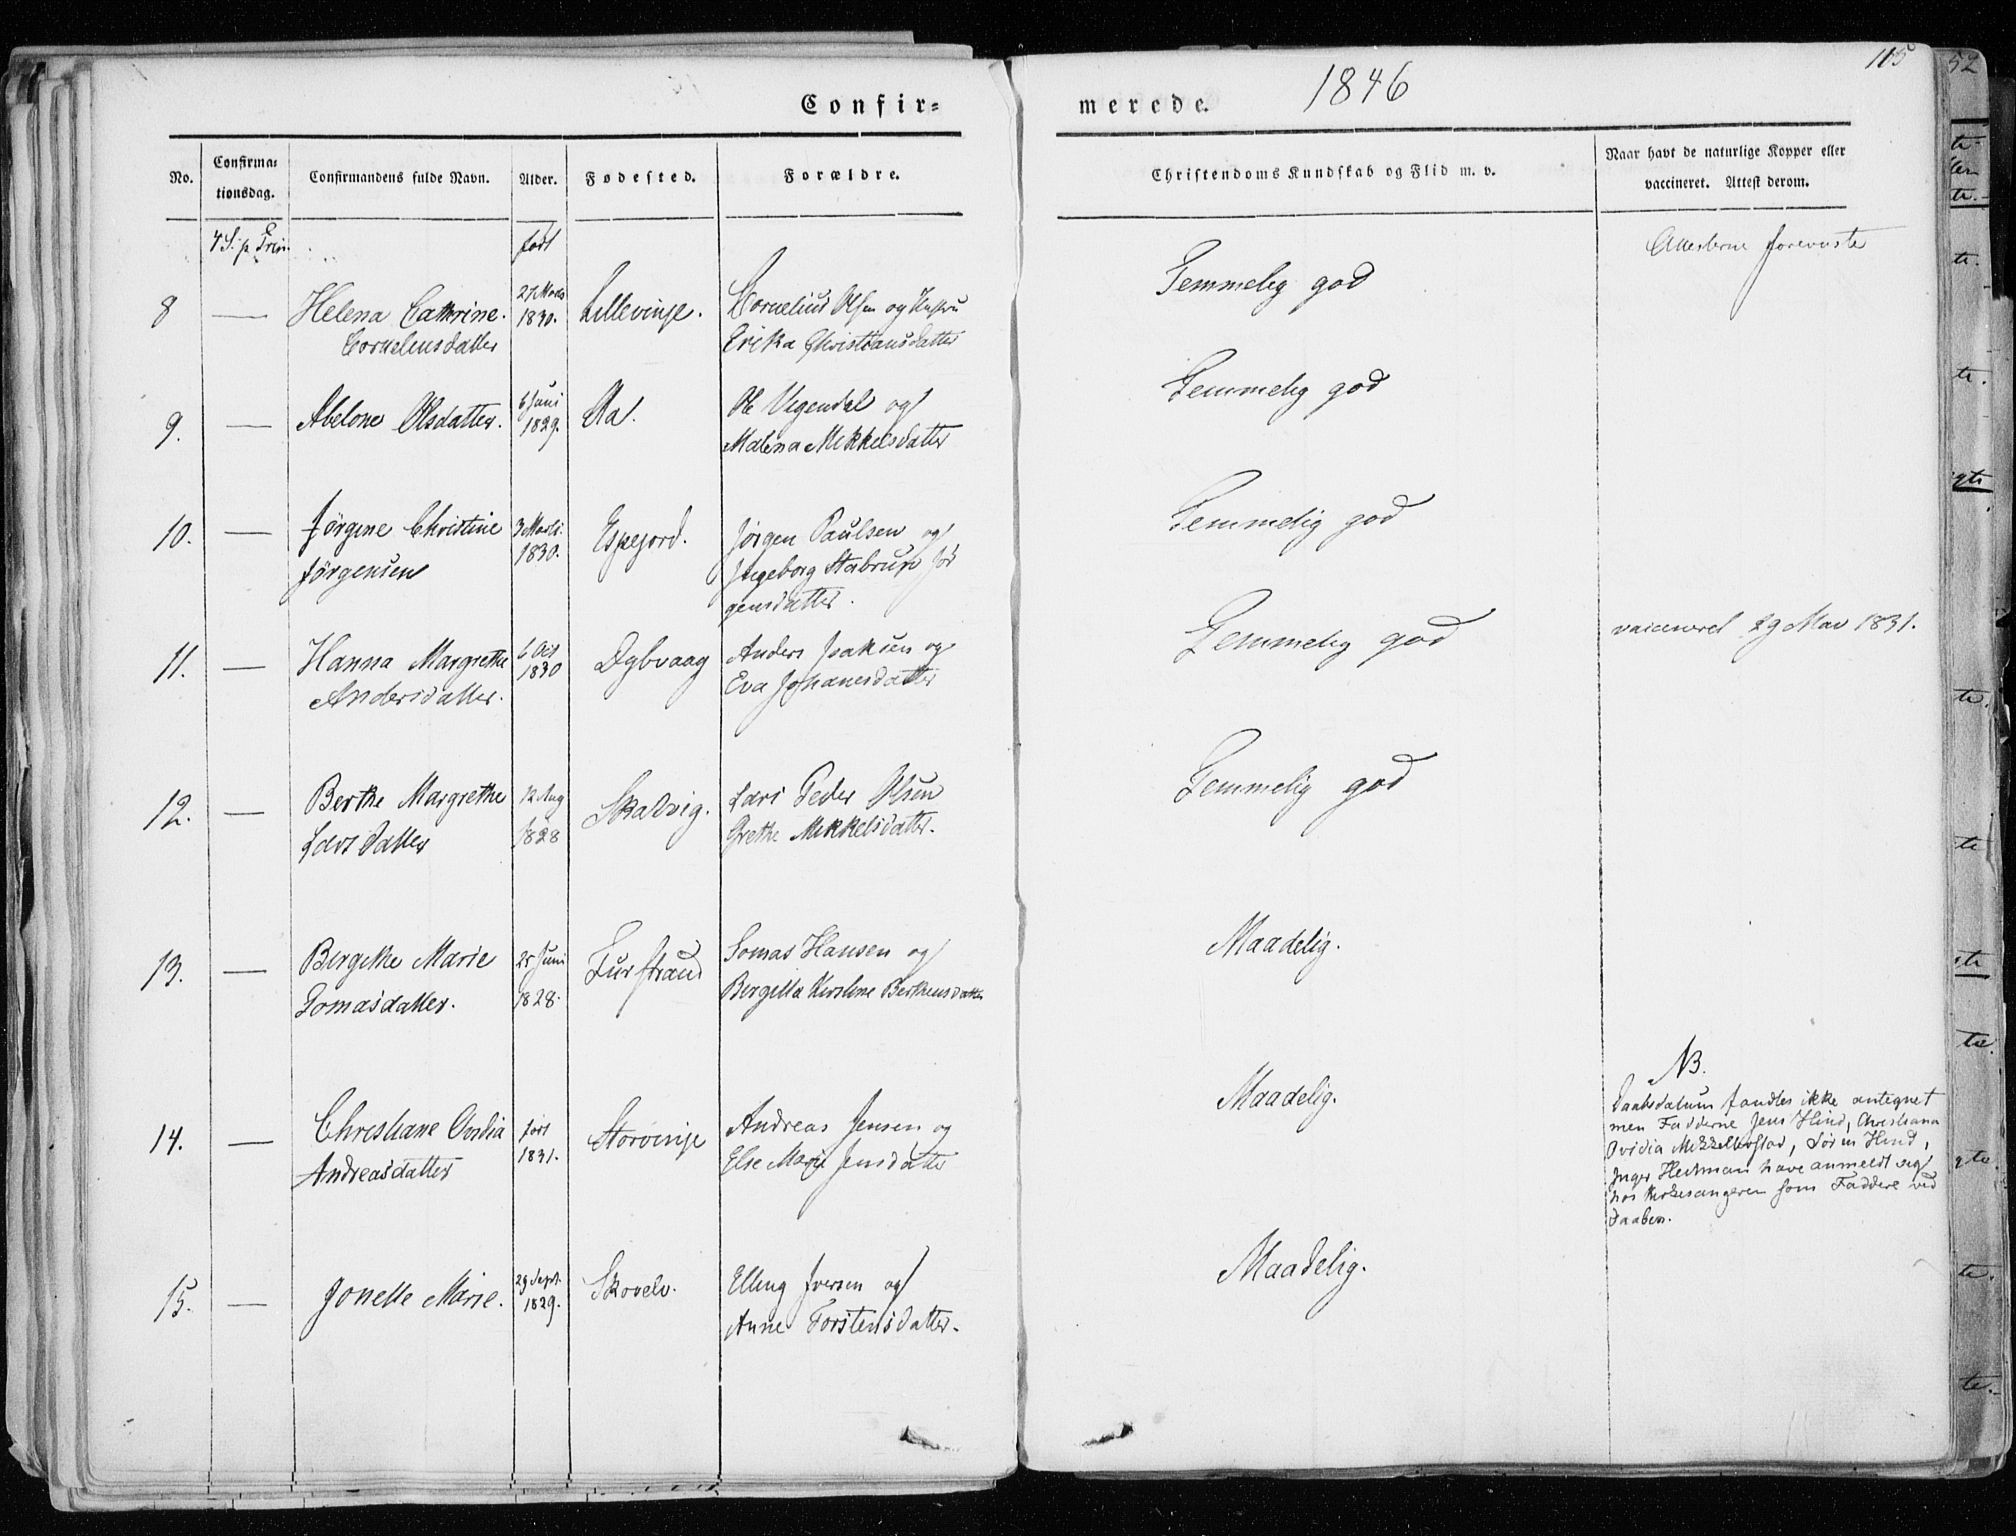 Confir=
merede.
1846
115
52
No.
Confirma=
tionsdag.
Confirmandens fulde Navn.
Alder.
Fødested.
Forældre.
Christendoms Kundskab og Flid m. v.
Naar havt de naturlige Kopper eller
vaccineret. Attest derom.
4 S. p Trin.
født
Attesterne foreviste
8
Helena Cathrine
Corneliusdatter
27 Marts
1830.
Lillevinje.
Cornelius Olsen og Hustru
Erika Christiansdatter
Temmelig god
9.
Abelone Olsdatter.
6 Juni
1829.
Aa.
Ole Vegendal og
Malena Mikkelsdatter
Temmelig god
10.
Jørgine Christine
Jørgensen
3 Marts
1830.
Espejord.
Jørgen Paulsen og
Ingeborg Stabrun Jør
gensdatter.
Temmelig god
11.
Hanna Margrethe
Andersdatter.
6 Oct
1830
Dybvaag
Anders Isaksen og
Eva Johanesdatter
Temmelig god
vaccineret 29 Mai 1831.
12.
Berthe Margrethe
Larsdatter
12 Aug
1828
Skatvig.
Lars Peder Olsen
Grethe Mikkelsdatter.
Temmelig god
13.
Bergithe Marie
Tomasdatter.
25 Juni
1828.
Furstrand
Tomas Hansen og
Bergitta Kirstine Berthensdatter
Maadelig.
14.
Christiane Ovidia
Andreasdatter
født
1831.
Storvinje
Andreas Jensen og
Else Marie Jensdatter
Maadelig.
NB.
Daabsdatum fandtes ikke antegnet
men Fadderne Jens Hind, Christiana
Ovidia Mikkelborstad, Søren Hind,
Inger Heitman have anmeldt sig
hos Kirkesangeren som Faddere ved
Daaben.
15.
Jonette Marie.
29 Sept.
1829.
Skovelv.
Elling Iversen og
Anne Torstensdatter.
Maadelig.